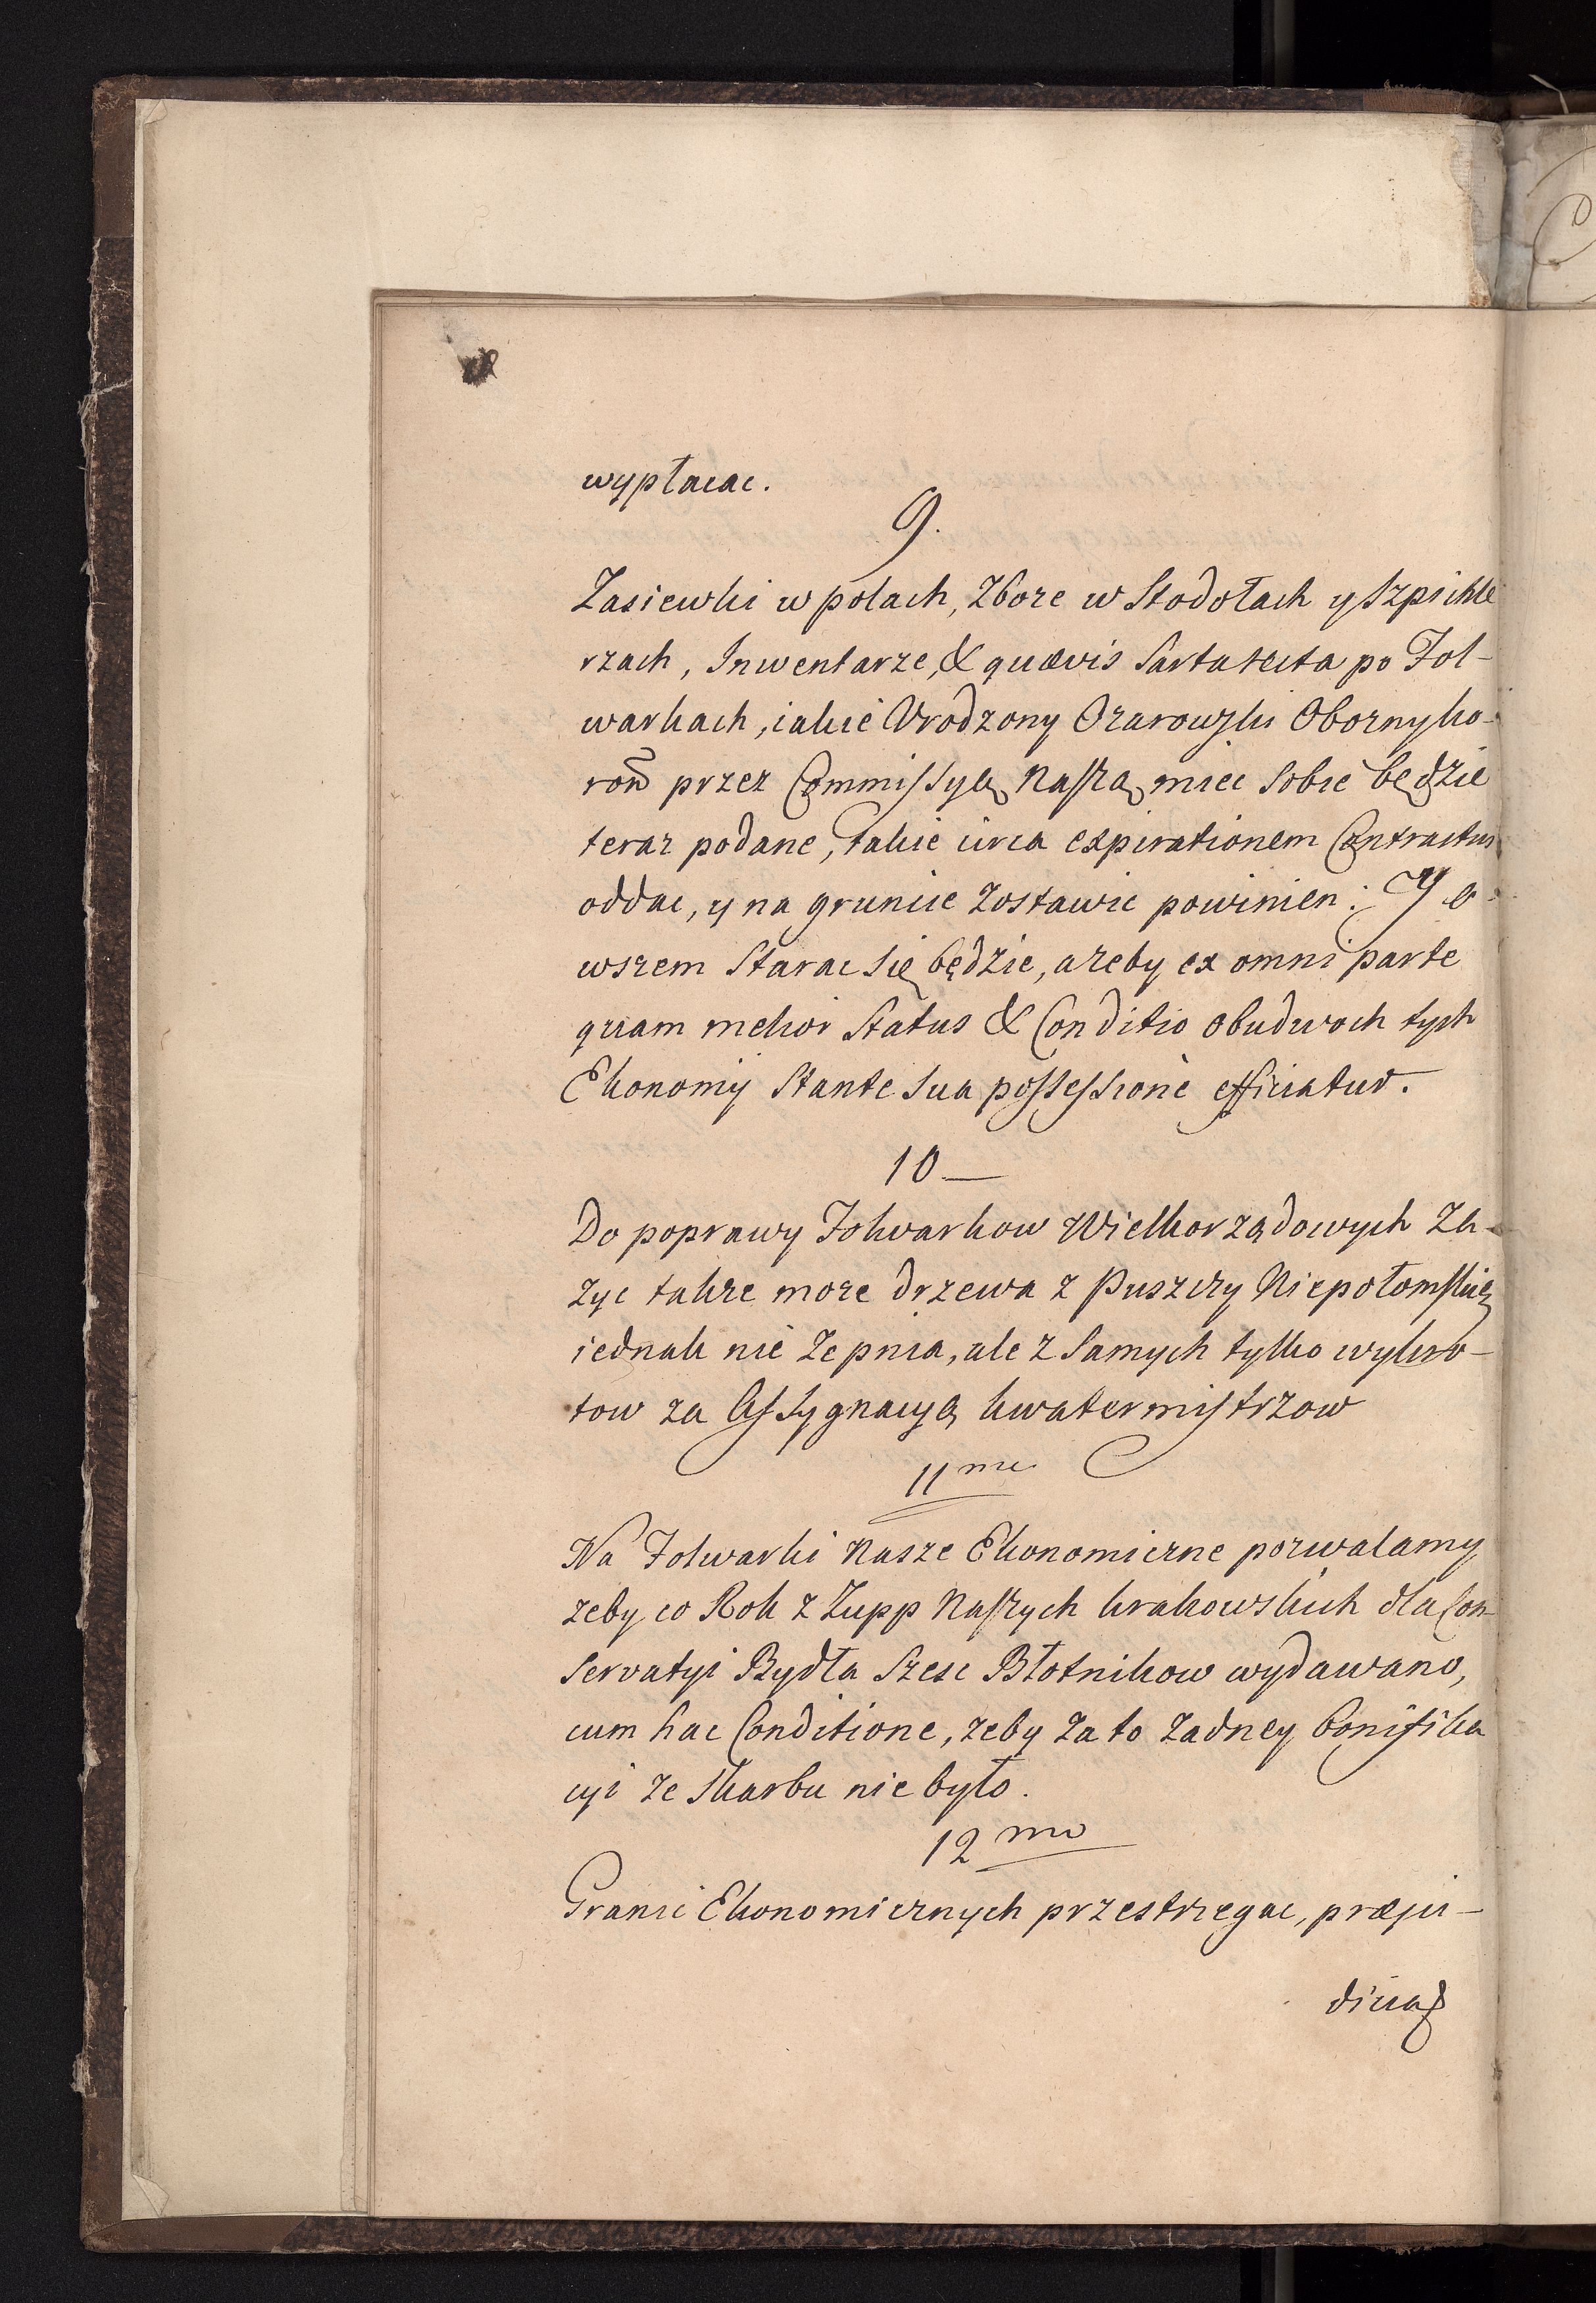 wypłacac.
9.
Zasiewki w polach, Zboze w Stodołach y Szpichle
rzach, Inwentarze, & quævis Sarta tecta po Fol-
warkach, iakie Urodzony Ozarowski Obozny ko-
ron̄ przez Commissyą Naszą miec sobie będzie
teraz podane, takie circa expirationem Contractus
oddac, y na gruncie Zostawic powinien: Y o-
wszem Starac się będzie, azeby ex omni parte
quam melior Status & Conditio obudwoch tych
Ekonomij Stante sua possessione efficiatur.
10
Do poprawy Folwarkow Wielkorządowych Za-
zyc takze moze drzewa z Puszczy Niepołomskiey
iednak nie Ze pnia, ale z Samych tylko wykro-
tow za Assygnacyą kwatermistrzow
11me
Na Folwarki Nasze Ekonomiczne pozwalamy
zeby co Rok z Zupp Naszych krakowskich dla Con-
servatyi Bydła Szesc Błotnikow wydawano,
cum hac Conditione, zeby Za to Zadney bonifika
cyi Ze Skarbu nie było.
12mo
Granic Ekonomicznych przestrzegac, præju-